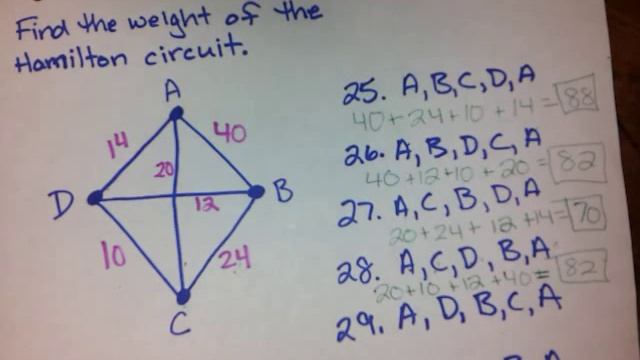 Find the weight of the
Hamilton circuit.
A
14
40
20
D
12
B
10
24
C
25. A, B, C, D, A
40+24+10+14=88
26. A, B, D, C, A
40+12+10+20=82
27. A, C, B, D, A
20+24+12+14=70
28. A, C, D, B, A
20+10+12+40=82
29. A, D, B, C, A